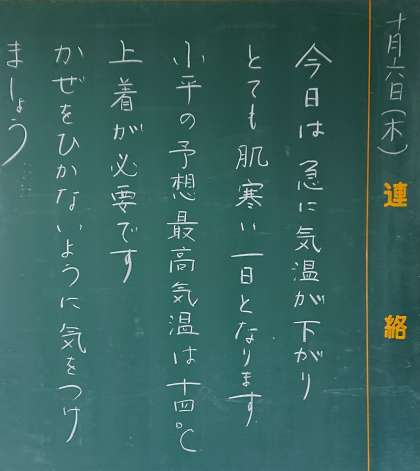 十月十六日(木)
連絡
今日は急に気温が下がり
とても肌寒い一日となります
小平の予想最高気温は十四℃
上着が必要です
かぜをひかないように気をつけ
ましょう